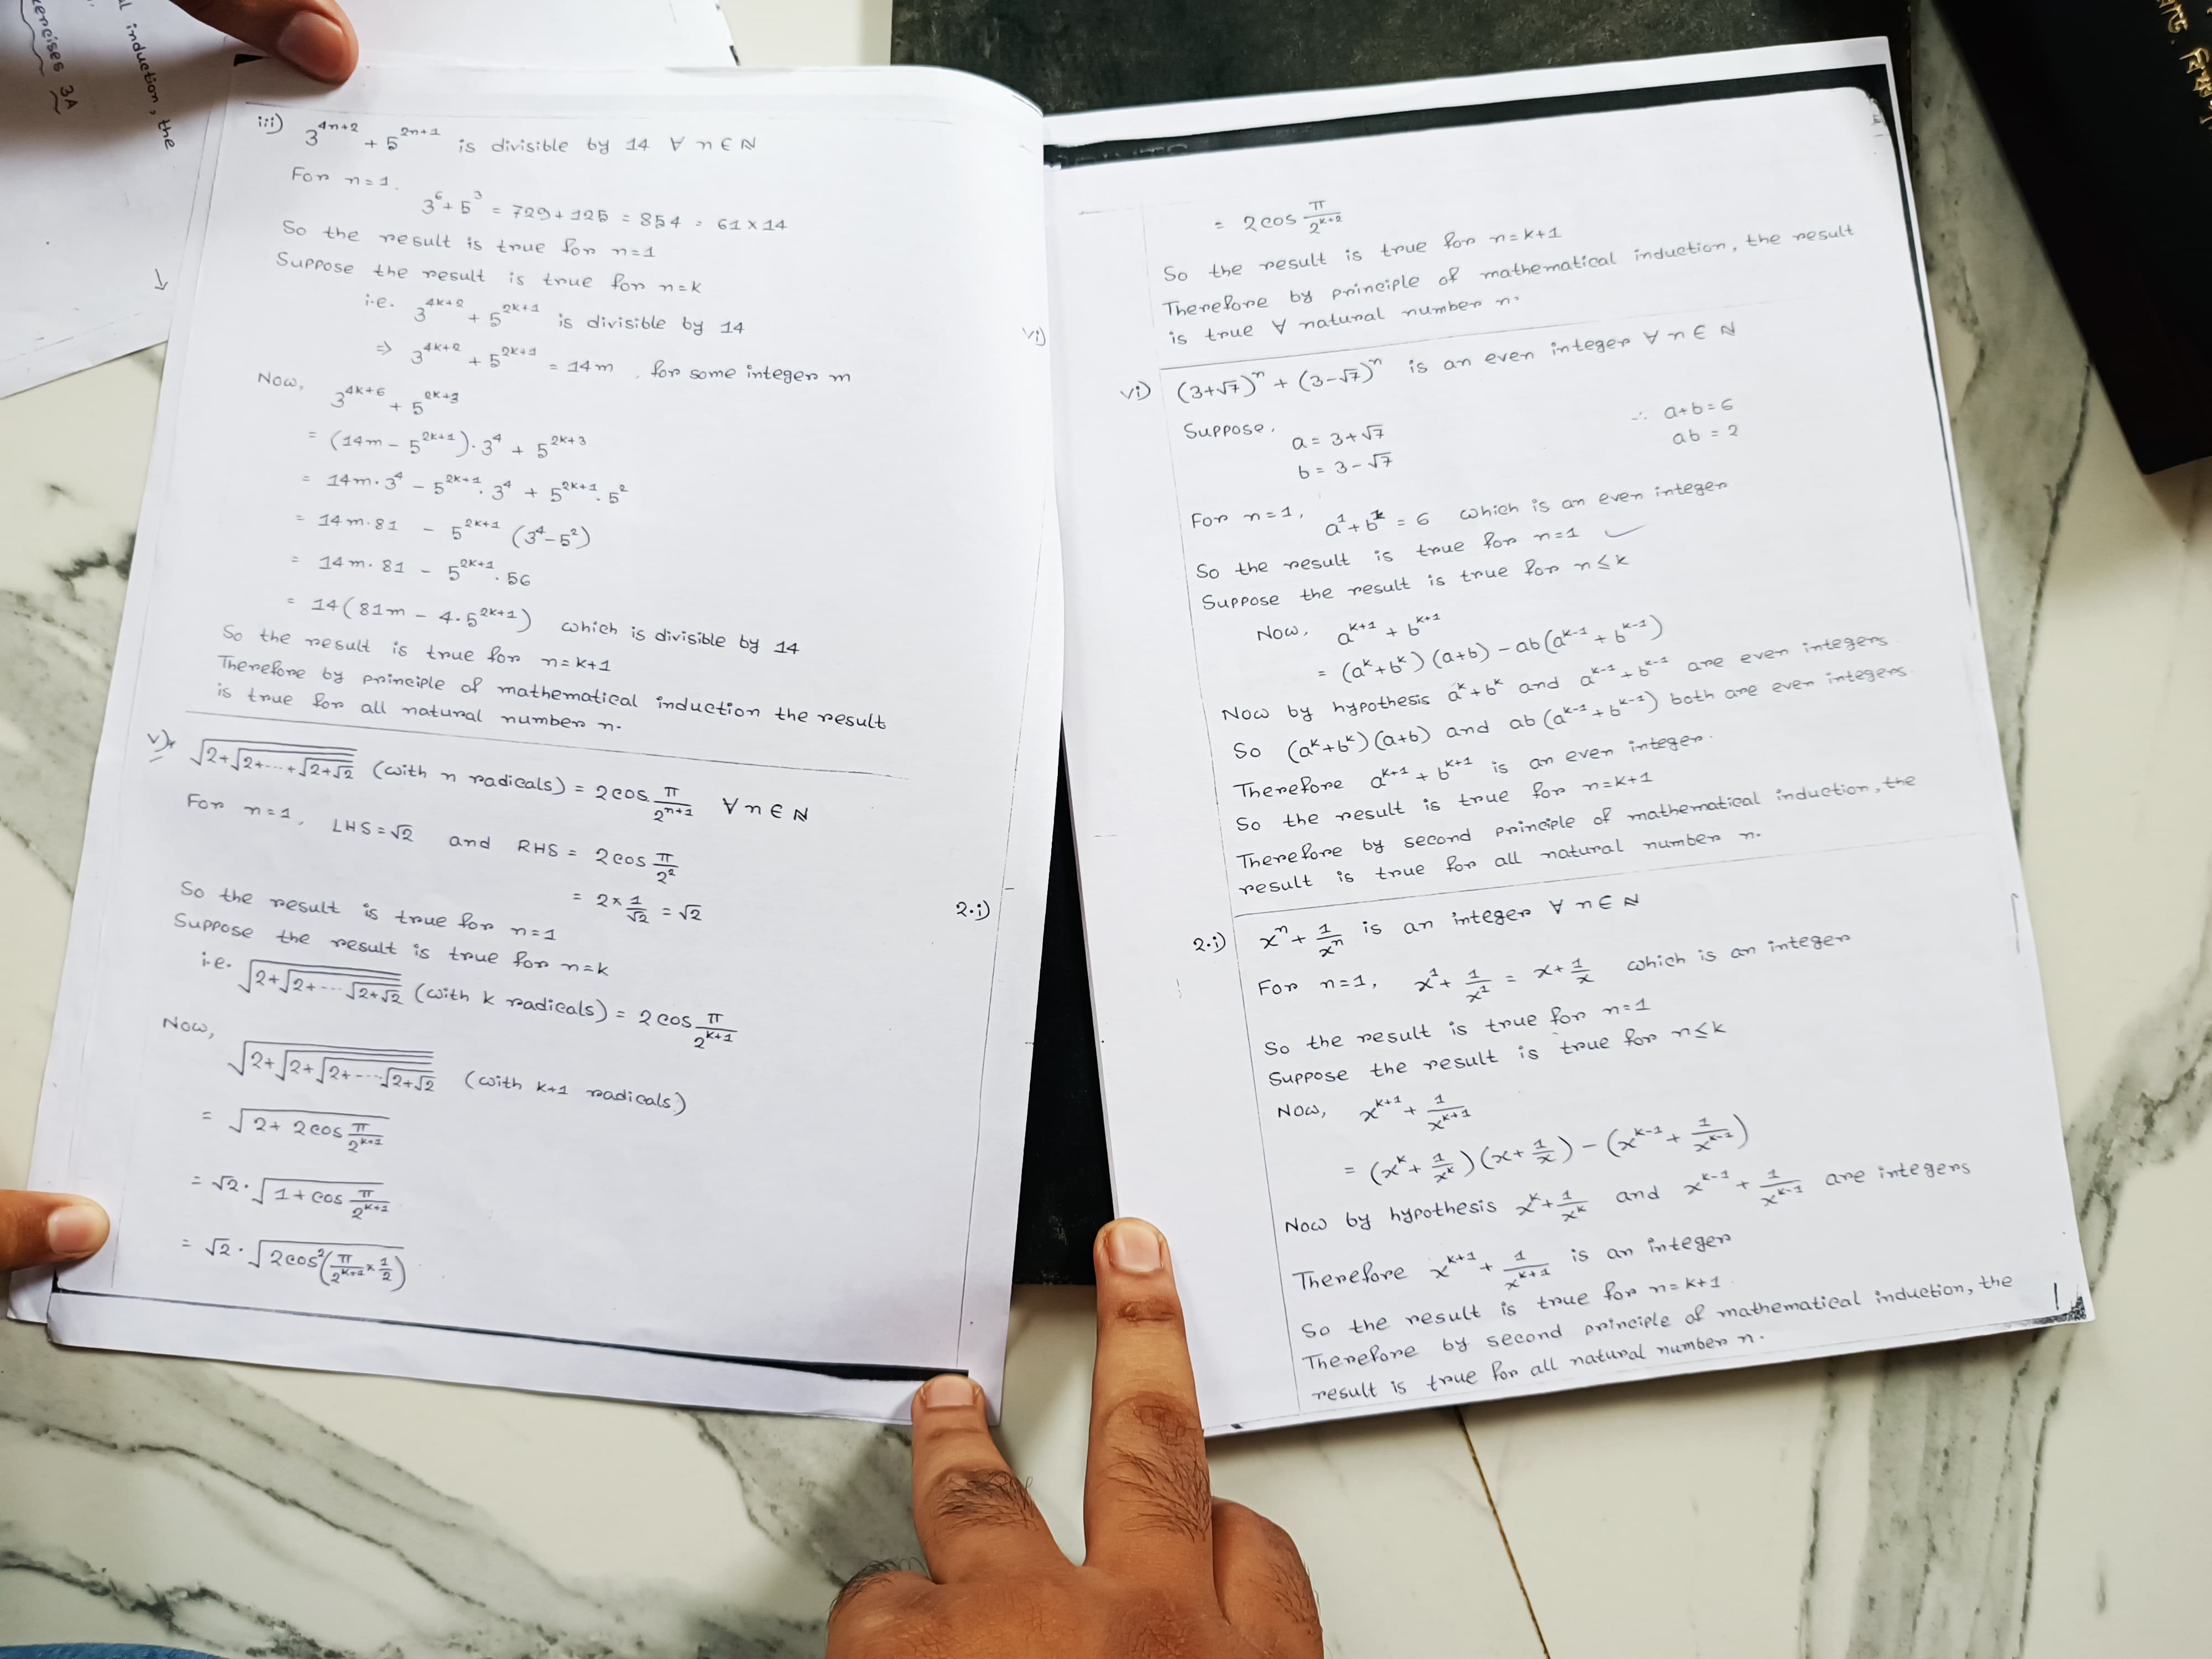 ercises 3A
l induction, the
iii) 3^{4n+2} + 5^{2n+1} is divisible by 14 ∀ n ∈ ℕ
For n=1.
3^6 + 5^3 = 729 + 125 = 854 = 61 × 14
So the result is true for n=1
Suppose the result is true for n=k
i.e. 3^{4k+2} + 5^{2k+1} is divisible by 14
⇒ 3^{4k+2} + 5^{2k+1} = 14m, for some integer m
Now,
3^{4k+6} + 5^{2k+3}
= (14m - 5^{2k+1}) · 3^4 + 5^{2k+3}
= 14m · 3^4 - 5^{2k+1} · 3^4 + 5^{2k+1} · 5^2
= 14m · 81 - 5^{2k+1} (3^4 - 5^2)
= 14m · 81 - 5^{2k+1} · 56
= 14(81m - 4 · 5^{2k+1}) which is divisible by 14
So the result is true for n=k+1
Therefore by principle of mathematical induction the result
is true for all natural number n.
v) √(2+√(2+····+√(2+√2))) (with n radicals) = 2cos π/2^{n+1} ∀ n ∈ ℕ
For n=1, LHS = √2 and RHS = 2cos π/2^2
= 2 × 1/√2 = √2
So the result is true for n=1
Suppose the result is true for n=k
i.e. √(2+√(2+····√(2+√2))) (with k radicals) = 2cos π/2^{k+1}
Now,
√(2+√(2+√(2+····√(2+√2)))) (with k+1 radicals)
= √(2 + 2cos π/2^{k+1})
= √2 · √(1 + cos π/2^{k+1})
= √2 · √(2cos^2(π/2^{k+1} × 1/2))
vi)
2.i)
= 2cos π/2^{k+2}
So the result is true for n=k+1
Therefore by principle of mathematical induction, the result
is true ∀ natural number n.
vi) (3+√7)^n + (3-√7)^n is an even integer ∀ n ∈ ℕ
Suppose, a = 3+√7 ∴ a+b = 6
b = 3-√7 ab = 2
For n=1, a^1 + b^1 = 6 which is an even integer
So the result is true for n=1 ✓
Suppose the result is true for n≤k
Now, a^{k+1} + b^{k+1}
= (a^k + b^k)(a+b) - ab(a^{k-1} + b^{k-1})
Now by hypothesis a^k + b^k and a^{k-1} + b^{k-1} are even integers
So (a^k + b^k)(a+b) and ab(a^{k-1} + b^{k-1}) both are even integers.
Therefore a^{k+1} + b^{k+1} is an even integer.
So the result is true for n=k+1
Therefore by second principle of mathematical induction, the
result is true for all natural number n.
2.i) x^n + 1/x^n is an integer ∀ n ∈ ℕ
For n=1, x^1 + 1/x^1 = x + 1/x which is an integer
So the result is true for n=1
Suppose the result is true for n≤k
Now, x^{k+1} + 1/x^{k+1}
= (x^k + 1/x^k)(x + 1/x) - (x^{k-1} + 1/x^{k-1})
Now by hypothesis x^k + 1/x^k and x^{k-1} + 1/x^{k-1} are integers
Therefore x^{k+1} + 1/x^{k+1} is an integer
So the result is true for n=k+1
Therefore by second principle of mathematical induction, the
result is true for all natural number n.